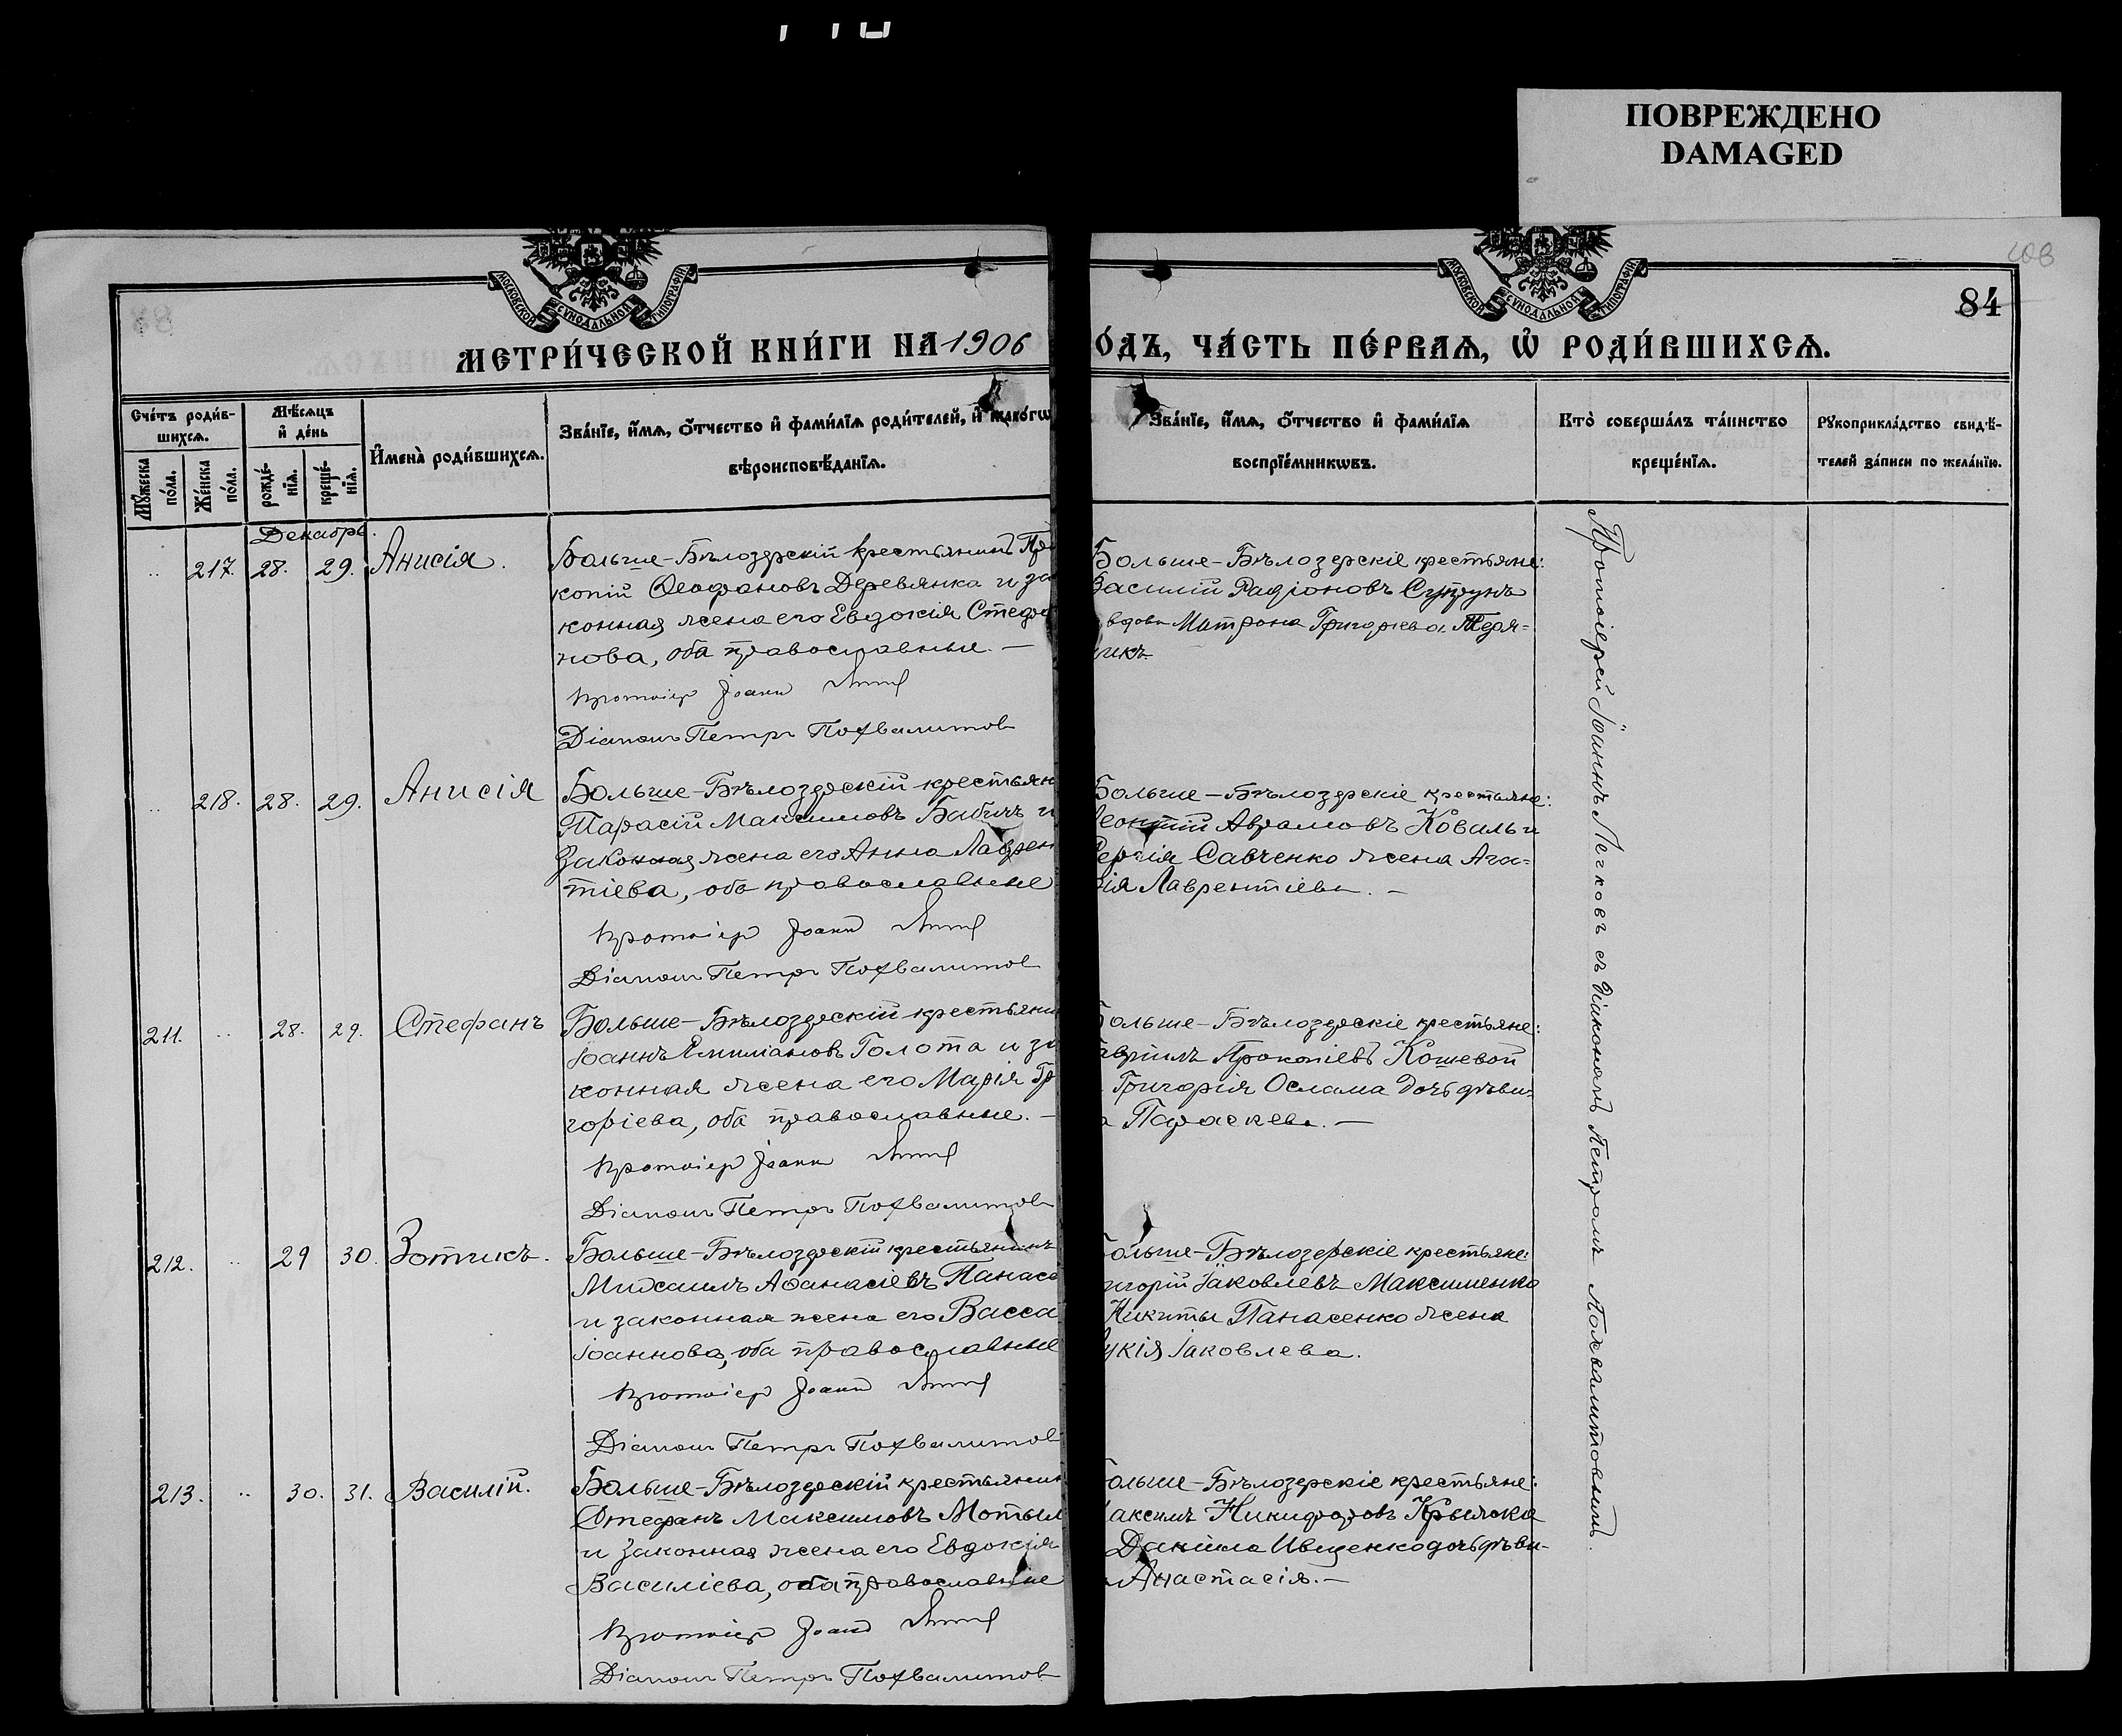 ПОВРЕЖДЕНО
DAMAGED
МОСКОВСКОЙ СѴНОДАЛЬНОЙ ТИПОГРАФІИ
МОСКОВСКОЙ СѴНОДАЛЬНОЙ ТИПОГРАФІИ
84
МЕТРИ́ЧЕСКОЙ КНИ́ГИ НА 1906
О́ДЪ, ЧА́СТЬ ПЕ́РВАѦ, Ѡ҆ РОДИ́ВШИХСѦ.
Сче́тъ роди́в-
шихсѧ.
Мꙋ́жеска по́ла.
Же́нска по́ла.
Мѣ́сѧцъ
и҆ де́нь
рожде́-
нїѧ.
креще́-
нїѧ.
И҆мена̀ роди́вшихсѧ.
Зва́нїе, и҆́мѧ, ѻ҆́тчество и҆ фами́лїѧ роди́телей, и҆ како́гѡ
вѣроисповѣ́данїѧ.
Зва́нїе, и҆́мѧ, ѻ҆́тчество и҆ фами́лїѧ
воспрїе́мникѡвъ.
Кто̀ соверша́лъ та́инство
креще́нїѧ.
Рꙋкоприкла́дство свидѣ́-
телей за́писи по жела́нїю.
Декабрь.
217. 28. 29. Анисія.
Больше-Бѣлозерскій крестьянинъ Про
копій Ѳеофановъ Деревянка и за
конная жена его Евдокія Стефа
нова, оба православные. —
Протоіер Іоанн
Діаконъ Петръ Похвалитов
Больше-Бѣлозерскіе крестьяне:
Василій Радіоновъ Супрунъ
вдова Матрона Григорьева
никъ.
218. 28. 29. Анисія
Больше-Бѣлозерскій крестьян
Тарасій Максимовъ Бабичъ и
законная жена его Анна Лаврен
тіева, оба православные
Протоіер Іоанн
Діаконъ Петръ Похвалитов
Больше-Бѣлозерскіе крестьяне:
Леонтій Аврамовъ Коваль и
Сергія Савченко жена Ага=
ѳія Лаврентіева. —
211. 28. 29. Стефанъ
Больше-Бѣлозерскій крестьянин
Іоаннъ Емиліановъ Голота и за
конная жена его Марія Гр
горіева, оба православные. —
Протоіер Іоанн
Діаконъ Петръ Похвалитов
Больше-Бѣлозерскіе крестьяне:
Гавріилъ Прокопіевъ Кошевой
Григорія Ослама дочь дѣви=
а Параскева. —
212. 29 30. Зотикъ.
Больше-Бѣлозерскій крестьянинъ
Михаилъ Аѳанасіевъ Панасе
и законная жена его Васса
Іоаннова, оба православные
Протоіер Іоанн
Діаконъ Петръ Похвалитов
Больше-Бѣлозерскіе крестьяне:
игорій Іаковлевъ Максименко
Никиты Панасенко жена
укія Іаковлева.
213. 30. 31. Василій.
Больше-Бѣлозерскій крестьянин
Стефанъ Максимовъ Мотыл
и законная жена его Евдокія
Василіева, оба православные
Протоіер Іоанн
Діаконъ Петръ Похвалитов
ольше-Бѣлозерскіе крестьяне:
аксимъ Никифоровъ
Даніила Ивщенко дочь дѣви-
Анастасія. —
Протоіерей Іоаннъ Легковъ съ діакономъ Петромъ Похвалитовымъ.